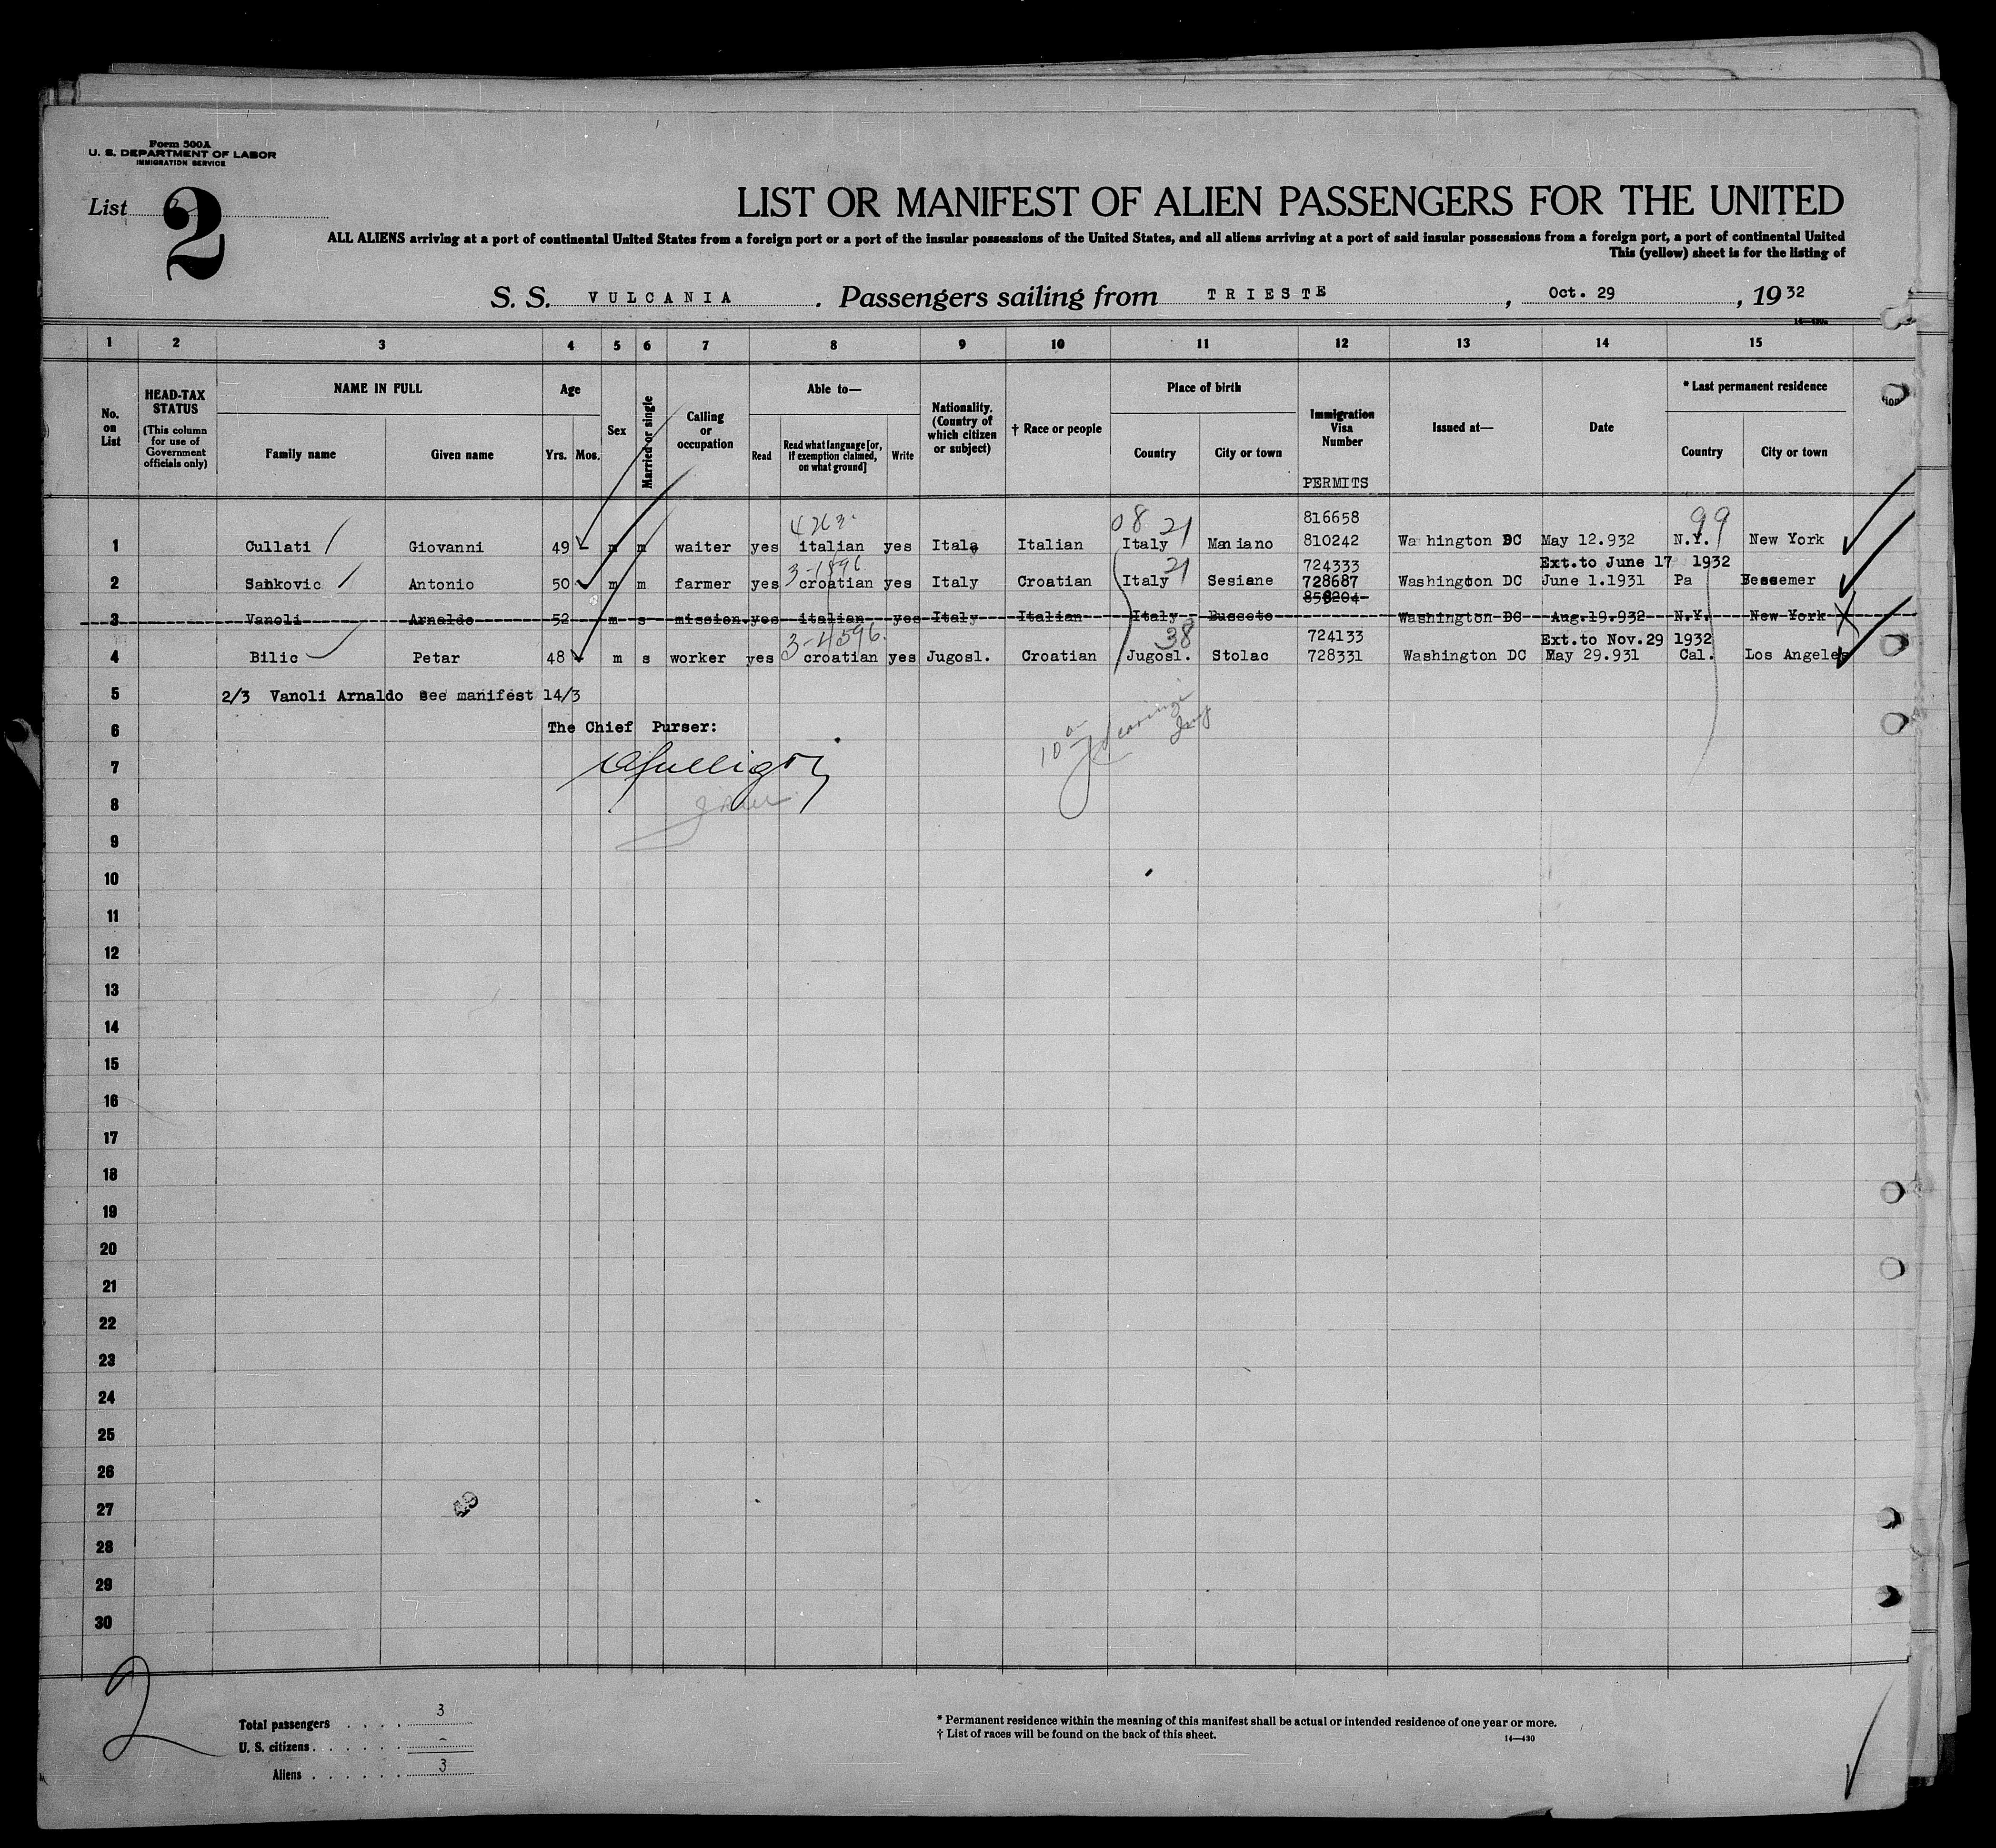 Form 500A
U. S. DEPARTMENT OF LABOR
IMMIGRATION SERVICE
List 2
LIST OR MANIFEST OF ALIEN PASSENGERS FOR THE UNITED
ALL ALIENS arriving at a port of continental United States from a foreign port or a port of the insular possessions of the United States, and all aliens arriving at a port of said insular possessions from a foreign port, a port of continental United
This (yellow) sheet is for the listing of
S. S. VULCANIA . Passengers sailing from TRIESTE , Oct. 29 , 19 32
1 2 3 4 5 6 7 8 9 10 11 12 13 14 15
No. on List
HEAD-TAX STATUS
(This column for use of Government officials only)
NAME IN FULL
Family name Given name
Age
Yrs. Mos.
Sex
Married or single
Calling or occupation
Able to—
Read Read what language [or, if exemption claimed, on what ground] Write
Nationality. (Country of which citizen or subject)
† Race or people
Place of birth
Country City or town
Immigration Visa Number
PERMITS
Issued at—
Date
* Last permanent residence
Country City or town
08 21 816658 99
1 Cullati Giovanni 49 m m waiter yes italian yes Italy Italian Italy Maniano 810242 Wa hington DC May 12.932 N.Y. New York
21 724333 Ext.to June 17 1932
2 Sankovic Antonio 50 m m farmer yes croatian yes Italy Croatian Italy Sesiane 728687 Washington DC June 1.1931 Pa Bessemer
858204
3 Vanoli Arnaldo 52 m s mission. yes italian yes Italy Italian Italy Busseto Washington DC Aug.19.932 N.Y. New York
3-4596 38 724133 Ext.to Nov.29 1932
4 Bilic Petar 48 m s worker yes croatian yes Jugosl. Croatian Jugosl. Stolac 728331 Washington DC May 29.931 Cal. Los Angeles
5 2/3 Vanoli Arnaldo see manifest 14/3
6 The Chief Purser:
7
8
9
10
11
12
13
14
15
16
17
18
19
20
21
22
23
24
25
26
27
28
29
30
2
Total passengers . . . . 3
U. S. citizens . . . . . . –
Aliens . . . . . . 3
* Permanent residence within the meaning of this manifest shall be actual or intended residence of one year or more.
† List of races will be found on the back of this sheet.
14—430